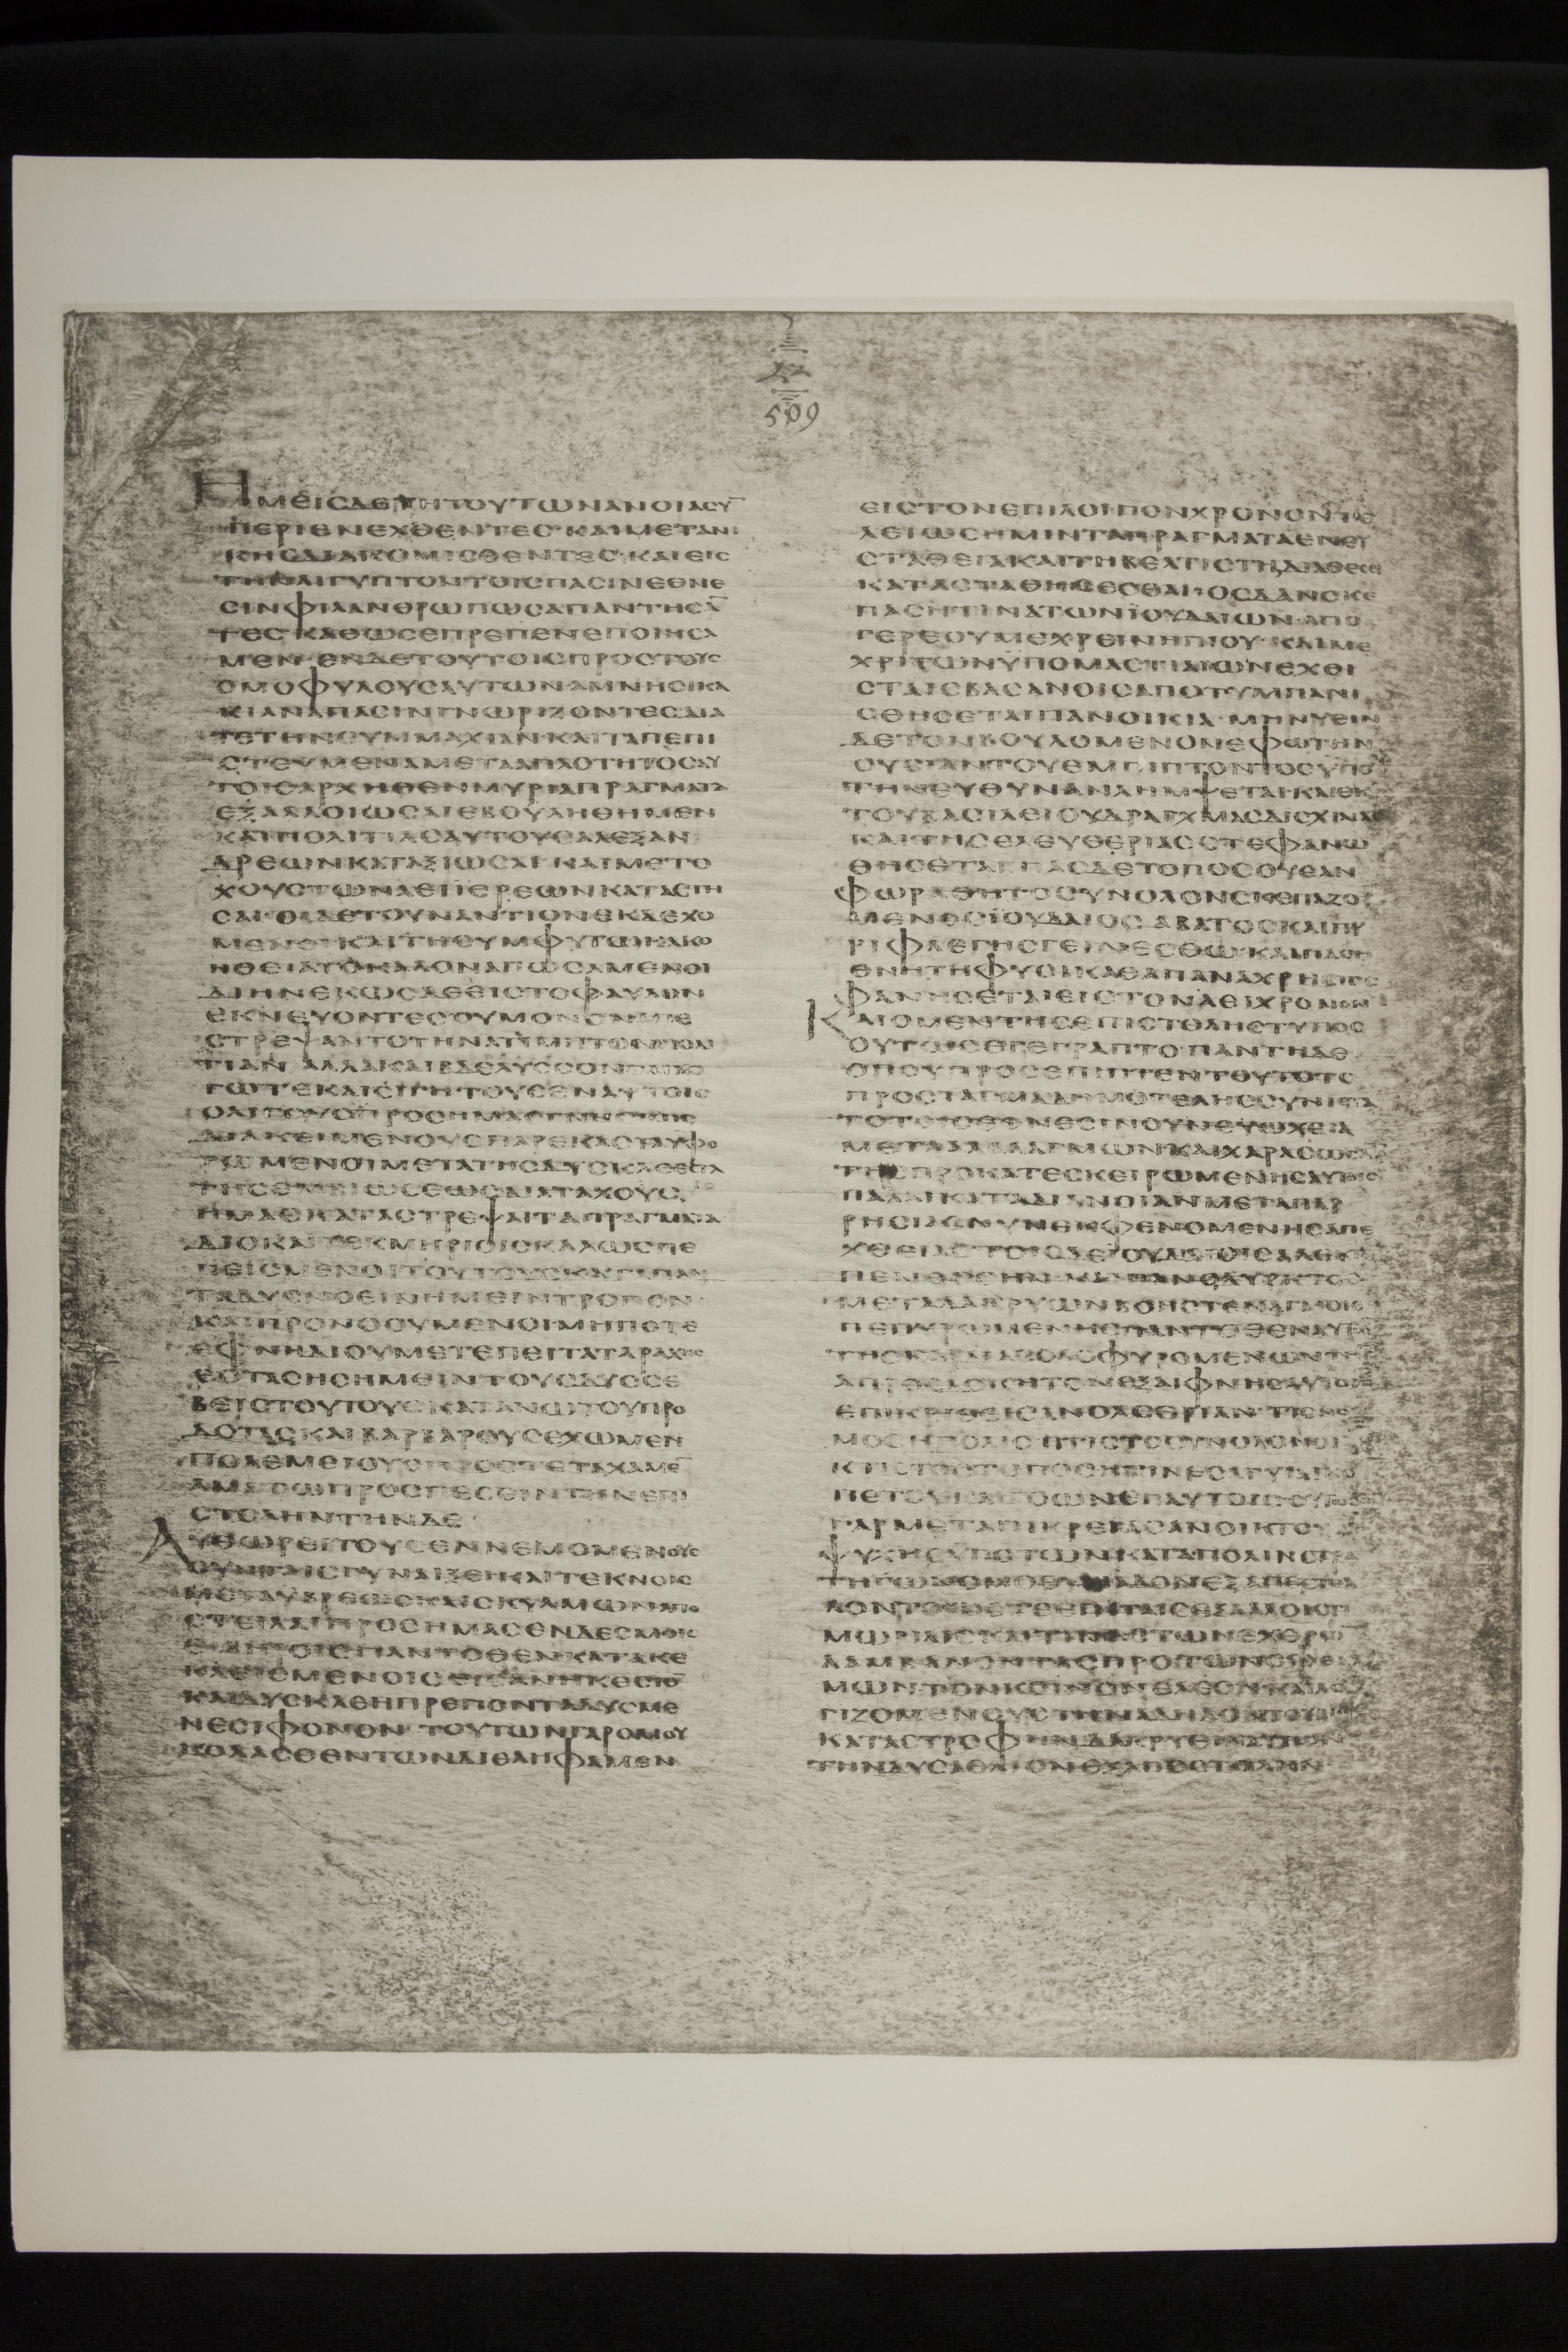 ΗΜΕΙΣΔΕΤΗΤΟΥΤΩΝΑΝΟΙΑΣΥ̅
ΠΕΡΙΕΝΕΧΘΕΝΤΕΣ·ΚΑΙΜΕΤΑΝΙ
ΚΗΣΔΙΑΚΟΜΙΣΘΕΝΤΕΣ·ΚΑΙΕΙΣ
ΤΗΝΑΙΓΥΠΤΟΝΤΟΙΣΠΑΣΙΝΕΘΝΕ
ΣΙΝΦΙΛΑΝΘΡΩΠΩΣΑΠΑΝΤΗΣΑ̅
ΤΕΣ·ΚΑΘΩΣΕΠΡΕΠΕΝΕΠΟΙΗΣΑ
ΜΕΝ·ΕΝΔΕΤΟΥΤΟΙΣΠΡΟΣΤΟΥΣ
ΟΜΟΦΥΛΟΥΣΑΥΤΩΝΑΜΝΗΣΙΚΑ
ΚΙΑΝΑΠΑΣΙΝΓΝΩΡΙΖΟΝΤΕΣΔΙΑ
ΤΕΤΗΝΣΥΜΜΑΧΙΑΝΚΑΙΤΑΠΕΠΙ
ΣΤΕΥΜΕΝΑΜΕΤΑΑΠΛΟΤΗΤΟΣΑΥ
ΤΟΙΣΑΡΧΗΘΕΝΜΥΡΙΑΠΡΑΓΜΑΤΑ
ΕΞΑΛΛΟΙΩΣΑΙΕΒΟΥΛΗΘΗΜΕΝ
ΚΑΙΠΟΛΙΤΙΑΣΑΥΤΟΥΣΑΛΕΞΑΝ
ΔΡΕΩΝΚΑΤΑΞΙΩΣΑΙ·ΚΑΙΜΕΤΟ
ΧΟΥΣΤΩΝΑΕΙΙΕΡΕΩΝΚΑΤΑΣΤΗ
ΣΑΙ·ΟΙΔΕΤΟΥΝΑΝΤΙΟΝΕΚΔΕΧΟ
ΜΕΝΟΙ·ΚΑΙΤΗΣΥΜΦΥΤΩΚΑΚΟ
ΗΘΕΙΑΤΟΚΑΛΟΝΑΠΩΣΑΜΕΝΟΙ
ΔΙΗΝΕΚΩΣΔΕΕΙΣΤΟΦΑΥΛΟΝ
ΕΚΝΕΥΟΝΤΕΣΟΥΜΟΝΟΝΑΠΕ
ΣΤΡΕΨΑΝΤΟΤΗΝΑΤΙΜΗΤΟΝΠΟΛΙ
ΤΙΑΝ ΑΛΛΑΚΑΙΒΔΕΛΥΣΣΟΝΤΑΙΛΟ
ΓΩΤΕΚΑΙΣΙΓΗΤΟΥΣΕΝΑΥΤΟΙΣ
ΟΛΙΓΟΥΣΠΡΟΣΗΜΑΣΓΝΗΣΙΩΣ
ΔΙΑΚΕΙΜΕΝΟΥΣΠΑΡΕΚΑΣΤΑΥΦΟ
ΡΩΜΕΝΟΙΜΕΤΑΤΗΣΔΥΣΚΛΕΕΣΤΑ
ΗΜΑΣΚΑΤΑΣΤΡΕΨΑΙΤΑΠΡΑΓΜΑΤΑ
ΔΙΟΚΑΙΤΕΚΜΗΡΙΟΙΣΚΑΛΩΣΠΕ
ΠΕΙΣΜΕΝΟΙΤΟΥΤΟΥΣΚΑΤΑΠΑΝ
ΤΑΔΥΣΝΟΕΙΝΗΜΕΙΝΤΡΟΠΟΝ·
ΚΑΙΠΡΟΝΟΟΥΜΕΝΟΙΜΗΠΟΤΕ
ΕΦΝΗΔΙΟΥΜΕΤΕΠΕΙΤΑΤΑΡΑΧΗΣ
ΕΣΤΑΣΗΣΗΜΕΙΝΤΟΥΣΔΥΣΣΕ
ΒΕΙΣΤΟΥΤΟΥΣΚΑΤΑΝΩΤΟΥΠΡΟ
ΔΟΤΑΣΚΑΙΒΑΡΒΑΡΟΥΣΕΧΩΜΕΝ
ΠΟΛΕΜΕΙΟΥΣΠΡΟΣΤΕΤΑΧΑΜΕ̅
ΑΜΑΤΩΠΡΟΣΠΕΣΕΙΝΤΗΝΕΠΙ
ΣΤΟΛΗΝΤΗΝΔΕ
ΑΥΘΩΡΕΙΤΟΥΣΕΝΝΕΜΟΜΕΝΟΥΣ
ΣΥΝΓΥΝΑΙΞΕΙΚΑΙΤΕΚΝΟΙΣ
ΜΕΤΑΥΒΡΕΩΣΚΑΙΣΚΥΛΜΩΝΑΠΟ
ΣΤΕΙΛΑΙΠΡΟΣΗΜΑΣΕΝΔΕΣΜΟΙΣ
ΣΙΔΗΡΟΙΣΠΑΝΤΟΘΕΝΚΑΤΑΚΕ
ΚΛΕΙΣΜΕΝΟΙΣΕΙΣΑΝΗΚΕΣΤΟ̅
ΚΑΙΔΥΣΚΛΕΗΠΡΕΠΟΝΤΑΔΥΣΜΕ
ΝΕΣΙΦΟΝΟΝ·ΤΟΥΤΩΝΓΑΡΟΜΟΥ
ΚΟΛΑΣΘΕΝΤΩΝΔΙΕΙΛΗΦΑΜΕΝ
ΕΙΣΤΟΝΕΠΙΛΟΙΠΟΝΧΡΟΝΟΝΤΕ
ΛΕΙΩΣΗΜΙΝΤΑΠΡΑΓΜΑΤΑΕΝΕΥ
ΣΤΑΘΕΙΑΚΑΙΤΗΒΕΛΤΙΣΤΗΔΙΑΘΕΣΕΙ
ΚΑΤΑΣΤΑΘΗΣΕΣΘΑΙ·ΟΣΔΑΝΣΚΕ
ΠΑΣΗΤΙΝΑΤΩΝΙΟΥΔΑΙΩΝ·ΑΠΟ
ΓΕΡΕΟΥΜΕΧΡΕΙΝΗΠΙΟΥ·ΚΑΙΜΕ
ΧΡΙΤΩΝΥΠΟΜΑΣΤΙΑΙΩΝΕΧΘΙ
ΣΤΑΙΣΒΑΣΑΝΟΙΣΑΠΟΤΥΜΠΑΝΙ
ΣΘΗΣΕΤΑΙΠΑΝΟΙΚΙΑ·ΜΗΝΥΕΙΝ
ΔΕΤΟΝΒΟΥΛΟΜΕΝΟΝΕΦΩΤΗΝ
ΟΥΣΙΑΝΤΟΥΕΜΠΙΠΤΟΝΤΟΣΥΠΟ
ΤΗΝΕΥΘΥΝΑΝΛΗΜΨΕΤΑΙ·ΚΑΙΕΚ
ΤΟΥΒΑΣΙΛΕΙΟΥΔΡΑΓΧΜΑΣΔΙΣΧΙΛΙΑΣ
ΚΑΙΤΗΣΕΛΕΥΘΕΡΙΑΣΣΤΕΦΑΝΩ
ΘΗΣΕΤΑΙ·ΠΑΣΔΕΤΟΠΟΣΟΥΕΑΝ
ΦΩΡΑΘΗΤΟΣΥΝΟΛΟΝΣΚΕΠΑΖΟ
ΜΕΝΟΣΙΟΥΔΑΙΟΣ ΑΒΑΤΟΣΚΑΙΠΥ
ΡΙΦΛΕΓΗΣΓΕΙΝΕΣΘΩ·ΚΑΙΠΑΣΗ
ΘΝΗΤΗΦΥΣΙΚΑΘΑΠΑΝΑΧΡΗΣΤΟΣ
ΦΑΝΗΣΕΤΑΙΕΙΣΤΟΝΑΕΙΧΡΟΝΟΝ
ΚΑΙΟΜΕΝΤΗΣΕΠΙΣΤΟΛΗΣΤΥΠΟΣ
ΟΥΤΩΣΕΓΕΓΡΑΠΤΟ·ΠΑΝΤΗΔΕ
ΟΠΟΥΠΡΟΣΕΠΙΠΤΕΝΤΟΥΤΟΤΟ
ΠΡΟΣΤΑΓΜΑΔΗΜΟΤΕΛΗΣΣΥΝΙΣΤΑ
ΤΟΤΟΙΣΕΘΝΕΣΙΝΟΥΝΕΥΩΧΕΙΑ
ΜΕΤΑΑΛΑΛΑΓΜΩΝΚΑΙΧΑΡΑΣΩΣΑΝ
ΤΗΣΠΡΟΚΑΤΕΣΚΕΙΡΩΜΕΝΗΣΑΥΤΟΙΣ
ΠΑΛΑΙΚΑΤΑΔΙΑΝΟΙΑΝΜΕΤΑΠΑΡ
ΡΗΣΙΑΣΝΥΝΕΚΦΕΝΟΜΕΝΗΣΑΠΕ
ΧΘΕΙΑΣΤΟΙΣΔΕΙΟΥΔΑΙΟΙΣΑΛΗΚΤΟ
ΠΕΝΘΟΣΗΝ·ΚΑΙΠΑΝΟΔΥΡΚΤΟΣ
ΜΕΤΑΔΑΚΡΥΩΝΒΟΗΣΤΕΝΑΓΜΟΙΣ
ΠΕΠΥΡΩΜΕΝΗΣΠΑΝΤΟΘΕΝΑΥΤΩ
ΤΗΣΚΑΡΔΙΑΣΟΛΟΦΥΡΟΜΕΝΩΝΤΗΝ
ΑΠΡΟΣΔΟΚΗΤΟΝΕΞΑΙΦΝΗΣΑΥΤΟΙΣ
ΕΠΙΚΡΙΘΕΙΣΑΝΟΛΕΘΡΙΑΝ·ΤΙΣΝΟ
ΜΟΣΗΠΟΛΙΣΗΤΙΣΤΟΣΥΝΟΛΟΝΟΙ
ΚΗΤΟΣΤΟΠΟΣΗΤΙΝΕΣΑΓΥΙΑΙΚΟ
ΓΑΡΜΕΤΑΠΙΚΡΕΙΑΣΑΝΟΙΚΤΟΥ
ΨΥΧΗΣΥΠΟΤΩΝΚΑΤΑΠΟΛΙΝΣΤΡΑ
ΛΟΝΤΟ·ΩΣΤΕΕΠΙΤΑΙΣΕΞΑΛΛΟΙΣΤΙ
ΜΩΡΙΑΙΣΚΑΙΤΙΝΑΣΤΩΝΕΧΘΡΩ̅
ΛΑΜΒΑΝΟΝΤΑΣΠΡΟΤΩΝΟΦΘΑΛ
ΜΩΝΤΟΝΚΟΙΝΟΝΕΛΕΟΝΚΑΙΛΟ
ΓΙΖΟΜΕΝΟΥΣΤΗΝΑΔΗΛΟΝΤΟΥΒΙΟΥ
ΚΑΤΑΣΤΡΟΦΗΝΔΑΚΡΥΕΙΝΑΥΤΩΝ
ΤΗΝΔΥΣΑΘΛΙΟΝΕΞΑΠΟΣΤΟΛΗΝ